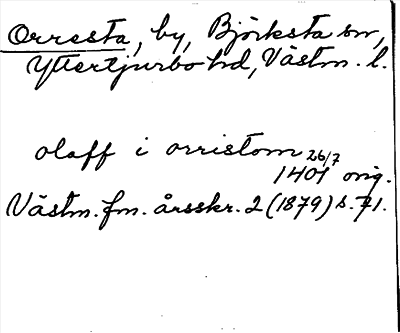 Orresta, by, Björksta sn,
Yttertjurbo hd, Västm. l.
olaff i orristom 26/7
1401 orig.
Västm. fm. årsskr. 2 (1879) s. 71.